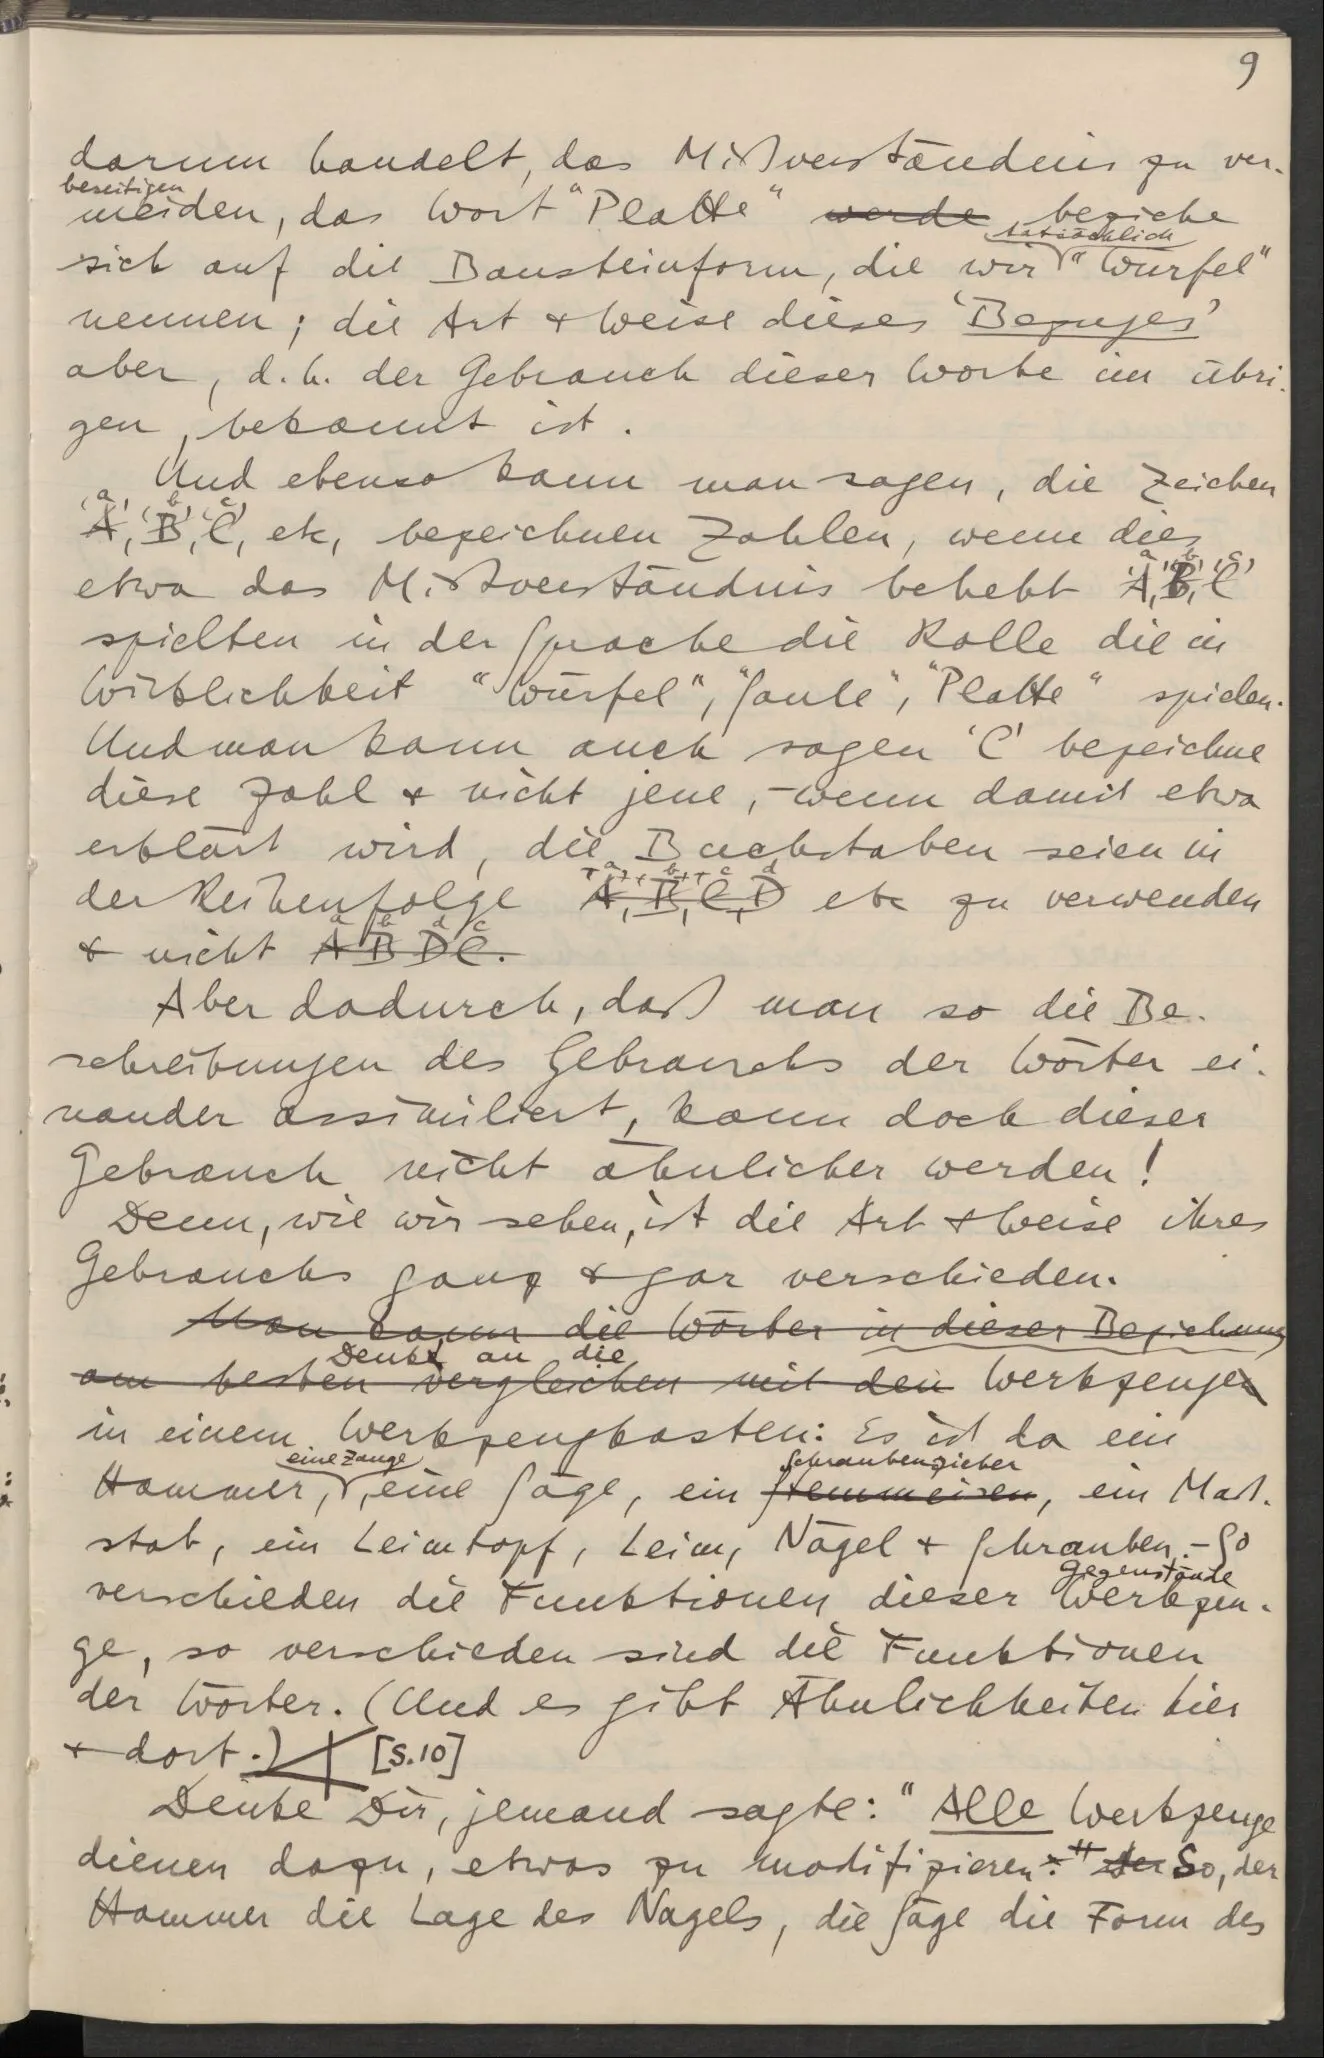 9
darum handelt, das Mißverständnis zu ver-
beseitigen
meiden, das Wort "Platte" werde beziehe
tatsächlich
sich auf die Bausteinform, die wir "Würfel"
nennen; die Art & Weise dieses 'Bezuges'
aber, d.h. der Gebrauch dieser Worte im übri-
gen, bekannt ist.
Und ebenso kann man sagen, die Zeichen
'a' 'b' 'c'
A, B, C, etc, bezeichnen Zahlen, wenn dies
'a' 'b' 'c'
etwa das Mißverständnis behebt A, B, C
spielten in der Sprache die Rolle die in
Wirklichkeit "Würfel", "Säule", "Platte" spielen.
Und man kann auch sagen 'C' bezeichne
diese Zahl & nicht jene, – wenn damit etwa
erklärt wird, die Buchstaben seien in
a b c d
der Reihenfolge A, B, C, D etc zu verwenden
a b d c
& nicht A B D C.
Aber dadurch, daß man so die Be-
schreibungen des Gebrauchs der Wörter ei-
nander assimiliert, kann doch dieser
Gebrauch nicht ähnlicher werden!
Denn, wie wir sehen, ist die Art & Weise ihres
Gebrauchs ganz & gar verschieden.
Man kann die Wörter in dieser Beziehung
Denke an die
am besten vergleichen mit den Werkzeugen
in einem Werkzeugkasten: Es ist da ein
eine Zange Schraubenzieher
Hammer, eine Säge, ein Stemmeisen, ein Maß-
stab, ein Leimtopf, Leim, Nägel & Schrauben. – So
Gegenstände
verschieden die Funktionen dieser Werkzeu-
ge, so verschieden sind die Funktionen
der Wörter. (Und es gibt Ähnlichkeiten hier
& dort.) [S.10]
Denke Dir, jemand sagte: "Alle Werkzeuge
dienen dazu, etwas zu modifizieren." der So, der
Hammer die Lage des Nagels, die Säge die Form des